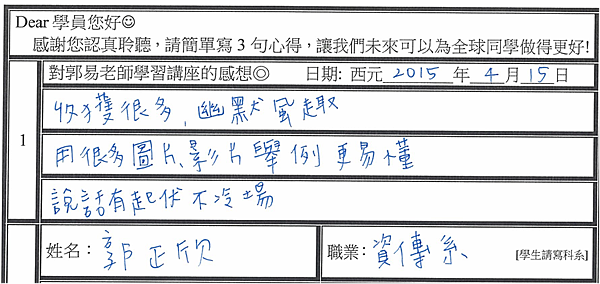 Dear 學員您好☺
感謝您認真聆聽，請簡單寫 3 句心得，讓我們未來可以為全球同學做得更好!
對郭易老師學習講座的感想◎ 日期: 西元 2015 年 4 月 15 日
收獲很多, 幽默風趣
1
用很多圖片、影片舉例更易懂
說話有起伏不冷場
姓名： 郭正欣 職業： 資傳系 [學生請寫科系]